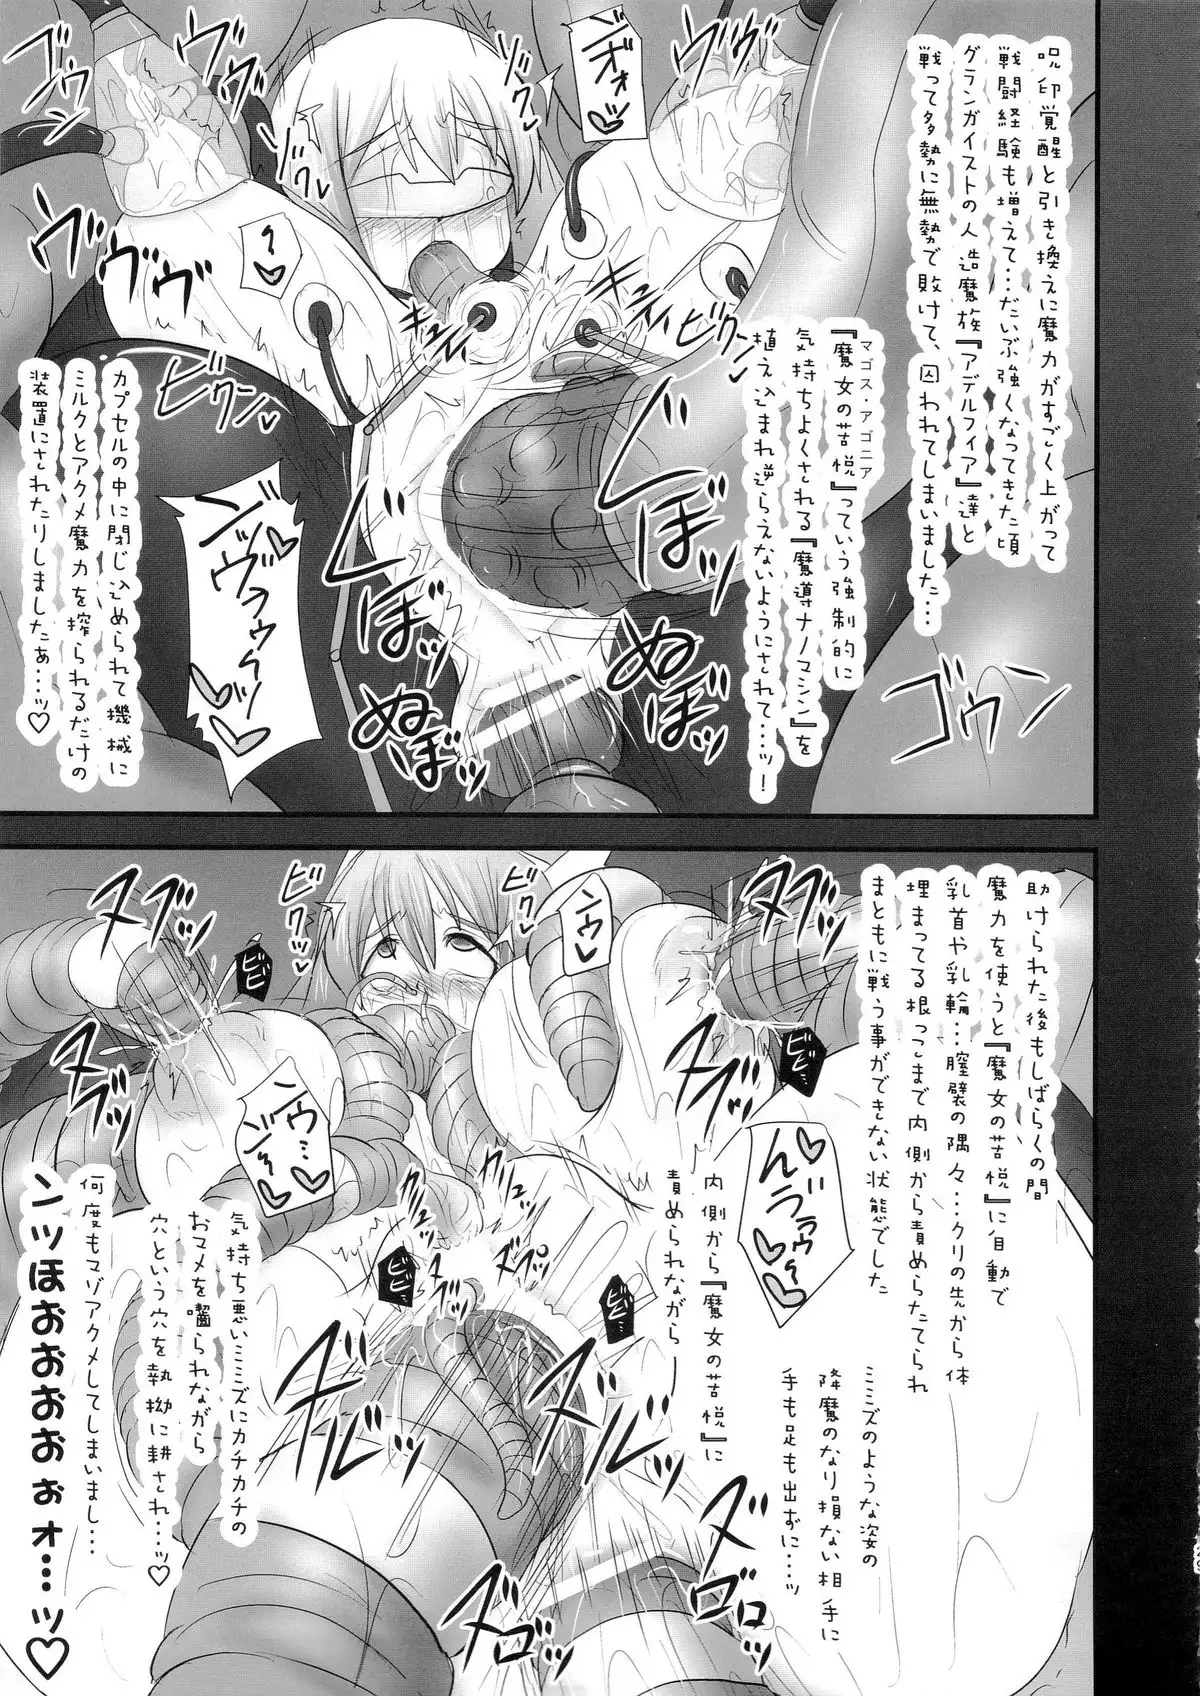 呪印覚醒と引き換えに魔力がすごく上がって
戦闘経験も増えて…だいぶ強くなってきた頃
グランガイストの人造魔族『アデルフィア』達と
戦って多勢に無勢で敗けて、囚われてしまいました…
マゴス・アゴニア
『魔女の苦悦』っていう強制的に
気持ちよくされる『魔導ナノマシン』を
植え込まれ逆らえないようにされて…ッ!
カプセルの中に閉じ込められて機械に
ミルクとアクメ魔力を搾られるだけの
装置にされたりしましたぁ…ッ♡
ゴウン
ヴヴヴッ
ドクッ
ビクンッ
ぬぼぼッ
助けられた後もしばらくの間
魔力を使うと『魔女の苦悦』に自動で
乳首や乳輪…膣襞の隅々…クリの先から体
埋まってる根っこまで内側から責めらたてられ
まともに戦う事ができない状態でした
ミミズのような姿の
降魔のなり損ない相手に
手も足も出ずに…ッ
内側から『魔女の苦悦』に
責められながら
気持ち悪いミミズにカチカチの
おマメを囓られながら
穴という穴を執拗に耕され…ッ♡
何度もマゾアクメしてしまいまし…
ンッほおおおおぉォ…ッ♡
ビクンッ
ヌブブッ
ビビッ
ズロロッ